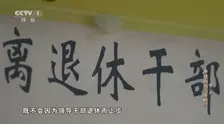 CCTV 1
离退休干部
既不会因为领导干部退休而止步